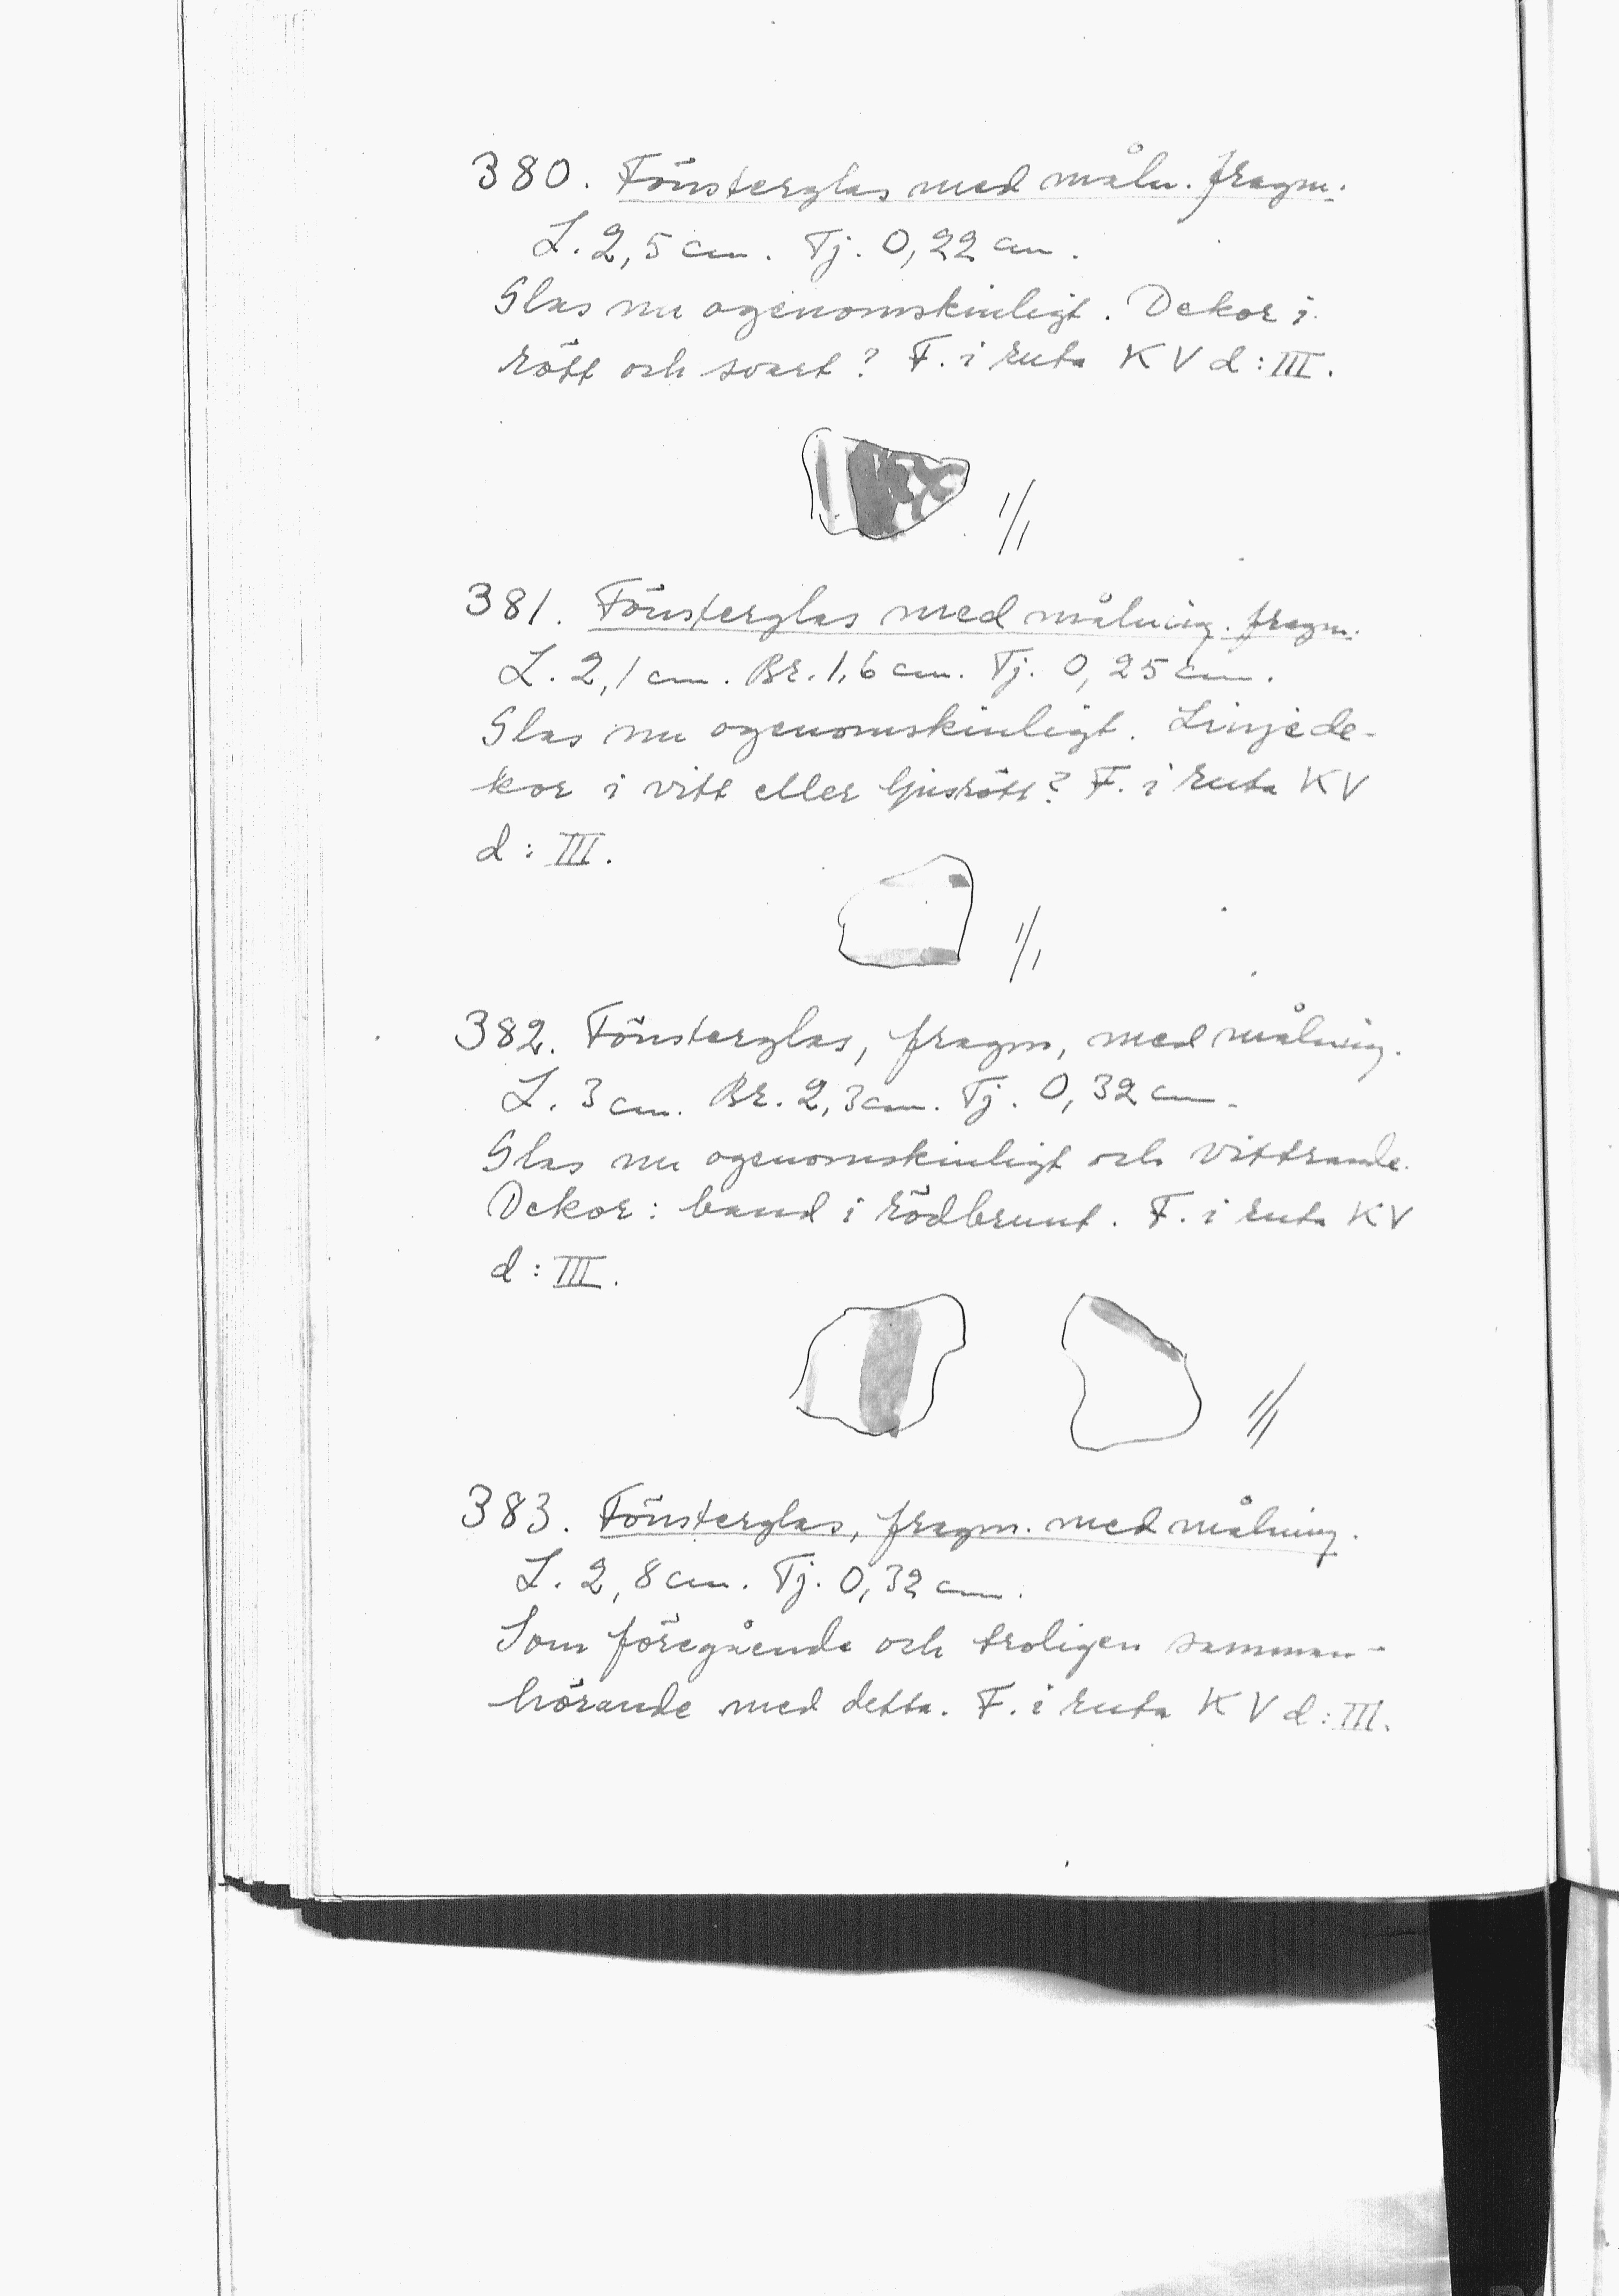 380. Fönsterglas med måln. fragm.
L. 2,5 cm. Tj. 0,22 cm.
Glas nu ogenomskinligt. Dekor i
rött och svart? F. i ruta KV d: III.
1/1
381. Fönsterglas med målning. fragm.
L. 2,1 cm. Br. 1,6 cm. Tj. 0,25 cm.
Glas nu ogenomskinligt. Linjede-
kor i vitt eller ljusrött? F. i ruta KV
d: III.
1/1
382. Fönsterglas, fragm, med målning.
L. 3 cm. Br. 2,3 cm. Tj. 0,32 cm.
Glas nu ogenomskinligt och vittrande.
Dekor: band i rödbrunt. F. i ruta KV
d: III.
1/1
383. Fönsterglas, fragm. med målning.
L. 2,8 cm. Tj. 0,32 cm.
Som föregående och troligen samman-
hörande med detta. F. i ruta KV d: III.